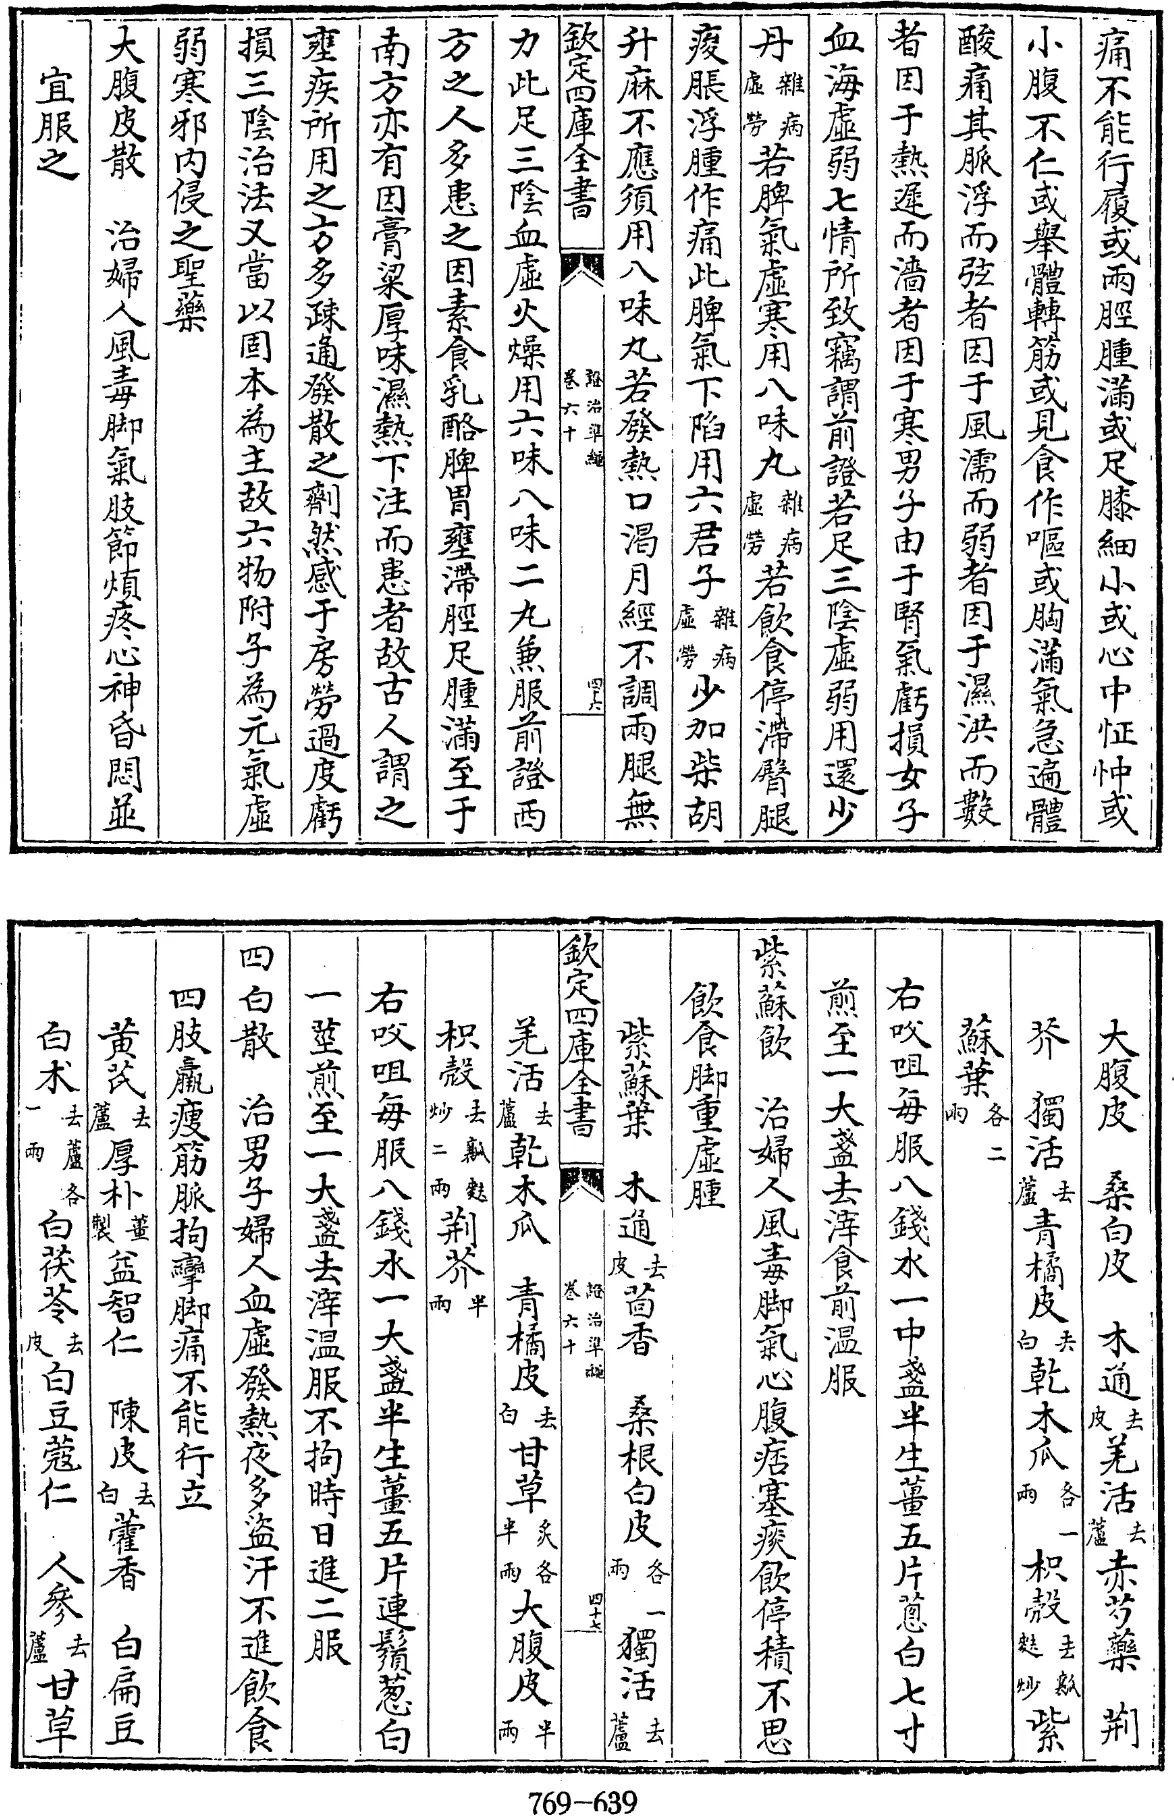 痛不能行履或兩脛腫滿或足膝細小或心中怔忡或
小腹不仁或舉體轉筋或見食作嘔或胸滿氣急遍體
酸痛其脈浮而弦者因于風濡而弱者因于濕洪而數
者因于熱遲而濇者因于寒男子由于腎氣虧損女子
血海虛弱七情所致竊謂前證若足三陰虛弱用還少
丹雜病虛勞若脾氣虛寒用八味丸雜病虛勞若飲食停滯臀腿
痠脹浮腫作痛此脾氣下陷用六君子雜病虛勞少加柴胡
升麻不應須用八味丸若發熱口渴月經不調兩腿無
欽定四庫全書 證治準繩卷六十 四十六
力此足三陰血虛火燥用六味八味二丸兼服前證西
方之人多患之因素食乳酪脾胃壅滯脛足腫滿至于
南方亦有因膏粱厚味濕熱下注而患者故古人謂之
壅疾所用之方多疎通發散之劑然感于房勞過度虧
損三陰治法又當以固本為主故六物附子為元氣虛
弱寒邪內侵之聖藥
大腹皮散 治婦人風毒脚氣肢節煩疼心神昏悶並
宜服之
大腹皮 桑白皮 木通去皮 羌活去蘆 赤芍藥 荆
芥 獨活去蘆 青橘皮去白 乾木瓜各一兩 枳殼去瓤麩炒 紫
蘇葉各二兩
右㕮咀每服八錢水一中盞半生薑五片蔥白七寸
煎至一大盞去滓食前温服
紫蘇飲 治婦人風毒脚氣心腹痞塞痰飲停積不思
飲食脚重虛腫
紫蘇葉 木通去皮 茴香 桑根白皮各一兩 獨活去蘆
欽定四庫全書 證治準繩卷六十 四十七
羌活去蘆 乾木瓜 青橘皮去白 甘草炙各半兩 大腹皮半兩
枳殼去瓤麩炒二兩 荆芥半兩
右㕮咀每服八錢水一大盞半生薑五片連鬚葱白
一莖煎至一大盞去滓温服不拘時日進二服
四白散 治男子婦人血虛發熱夜多盜汗不進飲食
四肢羸瘦筋脈拘攣脚痛不能行立
黃芪去蘆 厚朴薑製 益智仁 陳皮去白 藿香 白扁豆
白术去蘆各一兩 白茯苓去皮 白豆蔻仁 人參去蘆 甘草
769-639